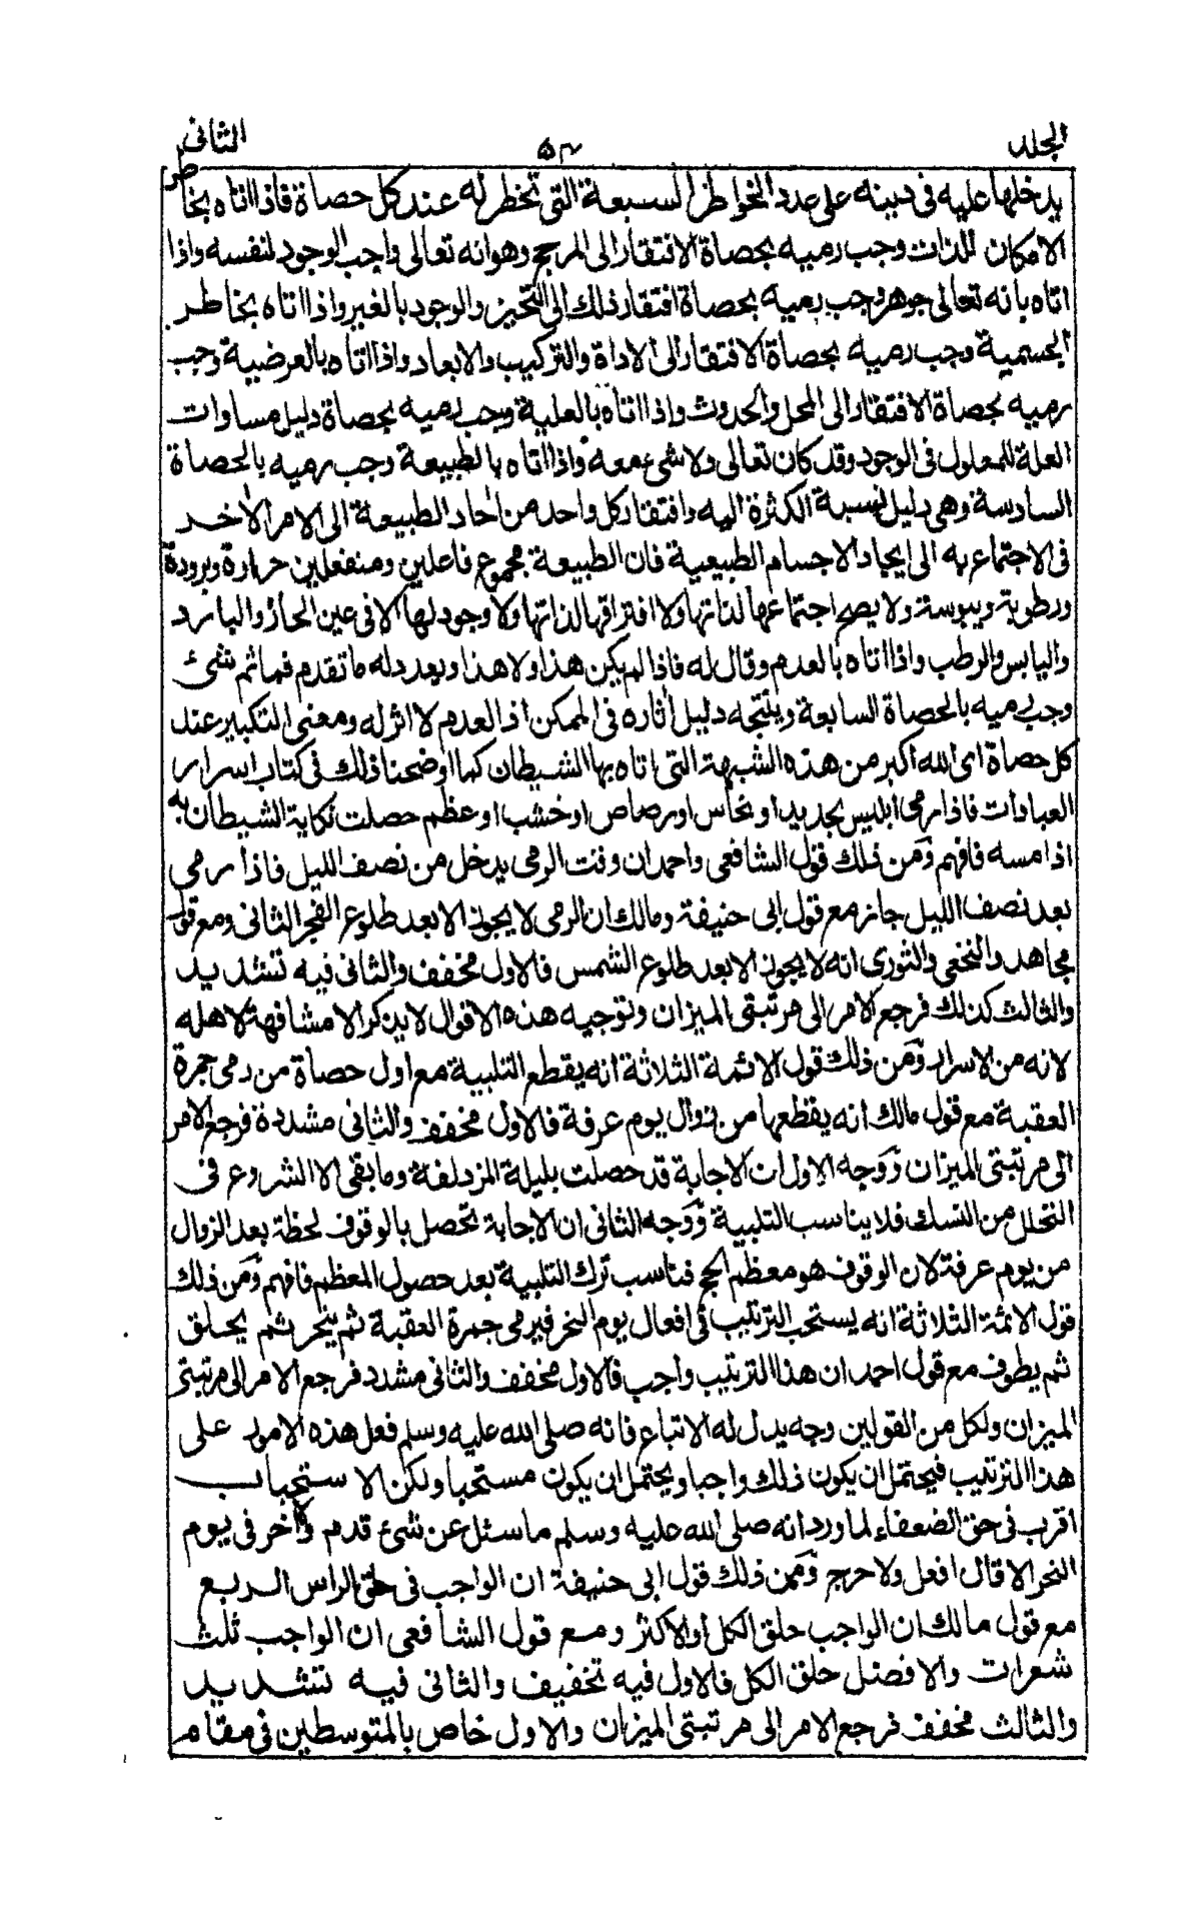 الجلد ٥٣ الثانى
يدخلها عليه فى دينه على عدد الخواطر السبعة التى تخطر له عند كل حصاة فاذا اتاه بخاطر
الامكان للذات وجب رميه بحصاة الافتقار الى المرجح وهو انه تعالى واجب الوجود لنفسه واذا
اتاه بانه تعالى جوهر وجب رميه بحصاة افتقار ذلك الى التحيز والوجود بالغير واذا اتاه بخاطر
الجسمية وجب رميه بحصاة الافتقار الى الاداة والتركيب والابعاد واذا اتاه بالعرضية وجب
رميه بحصاة الافتقار الى المحل والحدوث واذا اتاه بالعلية وجب رميه بحصاة دليل مساوات
العلة للمعلول فى الوجود وقد كان تعالى ولا شىء معه واذا اتاه بالطبيعة وجب رميه بالحصاة
السادسة وهى دليل نسبة الكثرة اليه وافتقار كل واحد من احاد الطبيعة الى الامر الاخر
فى الاجتماع به الى ايجاد الاجسام الطبيعية فان الطبيعة مجموع فاعلين ومنفعلين حرارة وبرودة
ورطوبة ويبوسة ولا يصح اجتماعها لذاتها ولا افتراقها لذاتها ولا وجود لها الا فى عين الحار والبارد
واليابس والرطب واذا اتاه بالعدم وقال له فاذا لم يكن هذا ولا هذا وبعد دله ما تقدم فما ثم شئ
وجب رميه بالحصاة السابعة وينتجه دليل آثاره فى الممكن اذ العدم لا اثر له ومعنى التكبير عند
كل حصاة اى الله اكبر من هذه الشبهة التى اتاه بها الشيطان كما اوضحنا ذلك فى كتاب اسرار
العبادات فاذا رمى ابليس بحديد او نحاس او رصاص او خشب او عظم حصلت نكاية الشيطان به
اذا مسه فافهم ومن ذلك قول الشافعى واحمد ان وقت الرمى يدخل من نصف الليل فاذا رمى
بعد نصف الليل جاز مع قول ابى حنيفة ومالك ان الرمى لا يجوز الا بعد طلوع الفجر الثانى ومع قول
مجاهد والنخعى والثورى انه لا يجوز الا بعد طلوع الشمس فالاول مخفف والثانى فيه تشديد
والثالث كذلك فرجع الامر الى مرتبتى الميزان وتوجيه هذه الاقوال لا يذكر الا مشافهة لاهله
لانه من الاسرار ومن ذلك قول الائمة الثلاثة انه يقطع التلبية مع اول حصاة من رمى جمرة
العقبة مع قول مالك انه يقطعها من زوال يوم عرفة فالاول مخفف والثانى مشدد فرجع الامر
الى مرتبتى الميزان ووجه الاول ان الاجابة قد حصلت بليلة المزدلفة وما بقى الا الشروع فى
التحلل من النسك فلا يناسب التلبية ووجه الثانى ان الاجابة تحصل بالوقوف لحظة بعد الزوال
من يوم عرفة لان الوقوف هو معظم الحج فناسب ترك التلبية بعد حصول المعظم فافهم ومن ذلك
قول الائمة الثلاثة انه يستحب الترتيب فى افعال يوم النحر فيرمى جمرة العقبة ثم ينحر ثم يحلق
ثم يطوف مع قول احمد ان هذا الترتيب واجب فالاول مخفف والثانى مشدد فرجع الامر الى مرتبتى
الميزان ولكل من القولين وجه يدل له الاتباع فانه صلى الله عليه وسلم فعل هذه الامور على
هذا الترتيب فيحتمل ان يكون ذلك واجبا ويحتمل ان يكون مستحبا ولكن الاستحباب
اقرب فى حق الضعفاء لما ورد انه صلى الله عليه وسلم ما سئل عن شئ قدم ولا أخر فى يوم
النحر الا قال افعل ولا حرج ومن ذلك قول ابى حنيفة ان الواجب فى حلق الراس الربع
مع قول مالك ان الواجب حلق الكل او الاكثر ومع قول الشافعى ان الواجب ثلث
شعرات والافضل حلق الكل فالاول فيه تخفيف والثانى فيه تشديد
والثالث مخفف فرجع الامر الى مرتبتى الميزان والاول خاص بالمتوسطين فى مقام